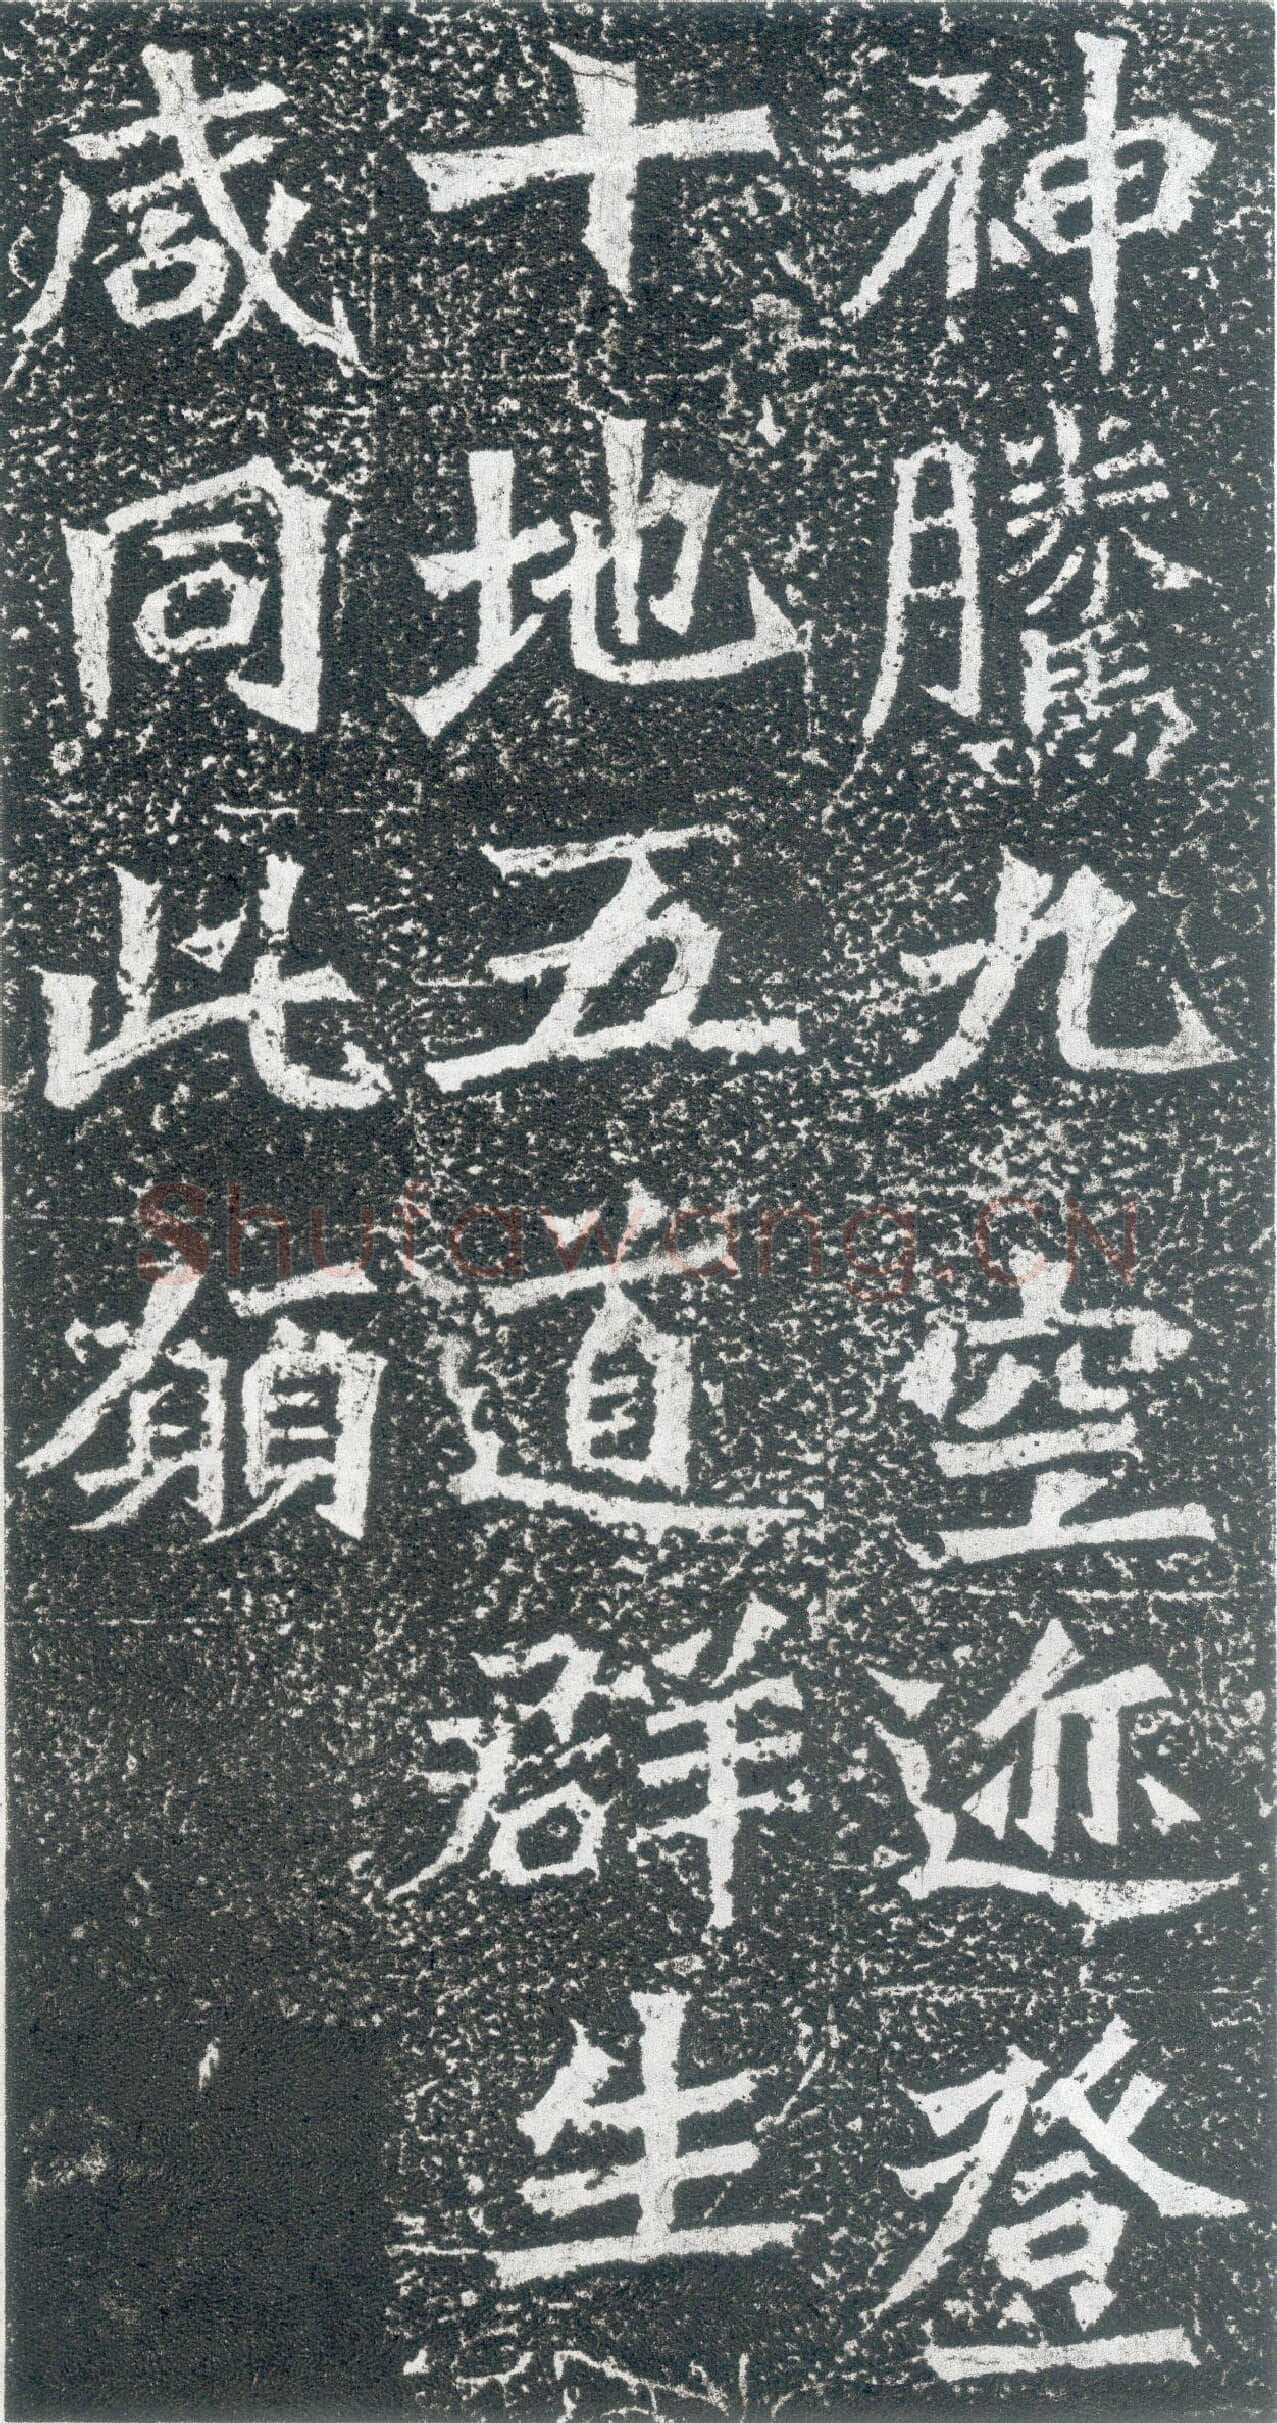 神騰九空迹登
十地五道群生
咸同此願
Shufawang.CN